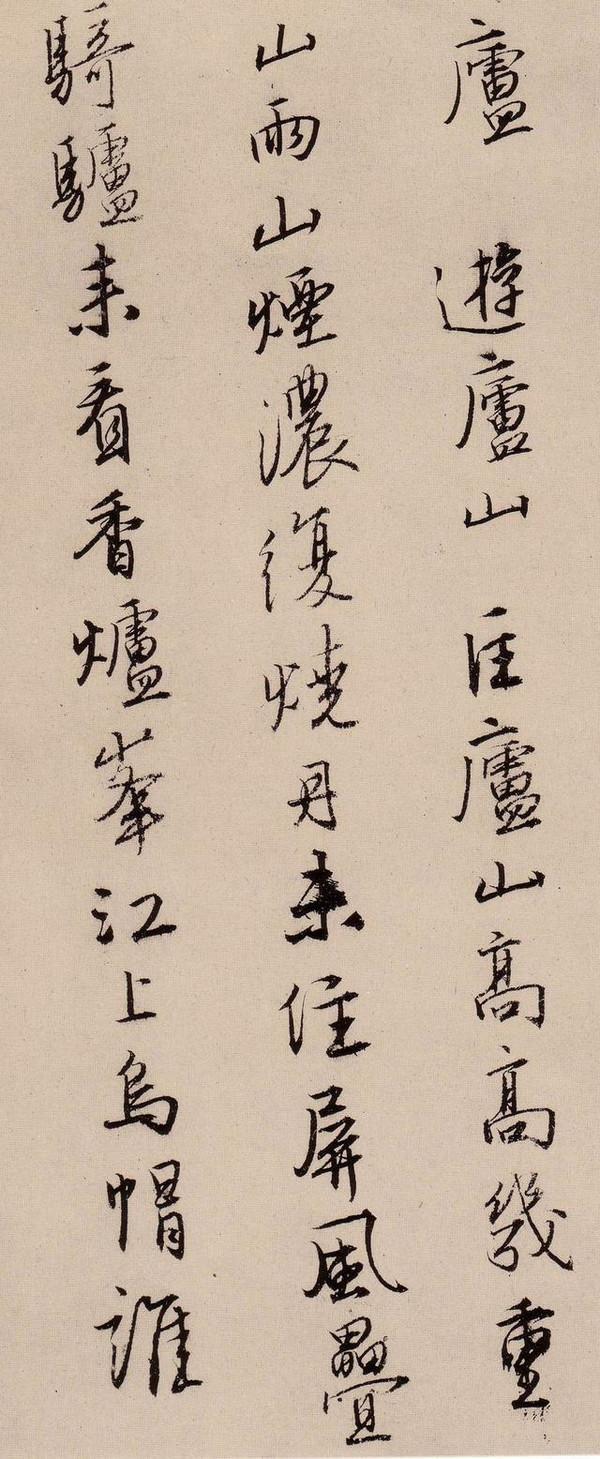 廬 遊廬山 匡廬山高高幾重
山雨山煙濃復燒丹来住屏風疊
騎驢来看香爐峯江上烏帽誰